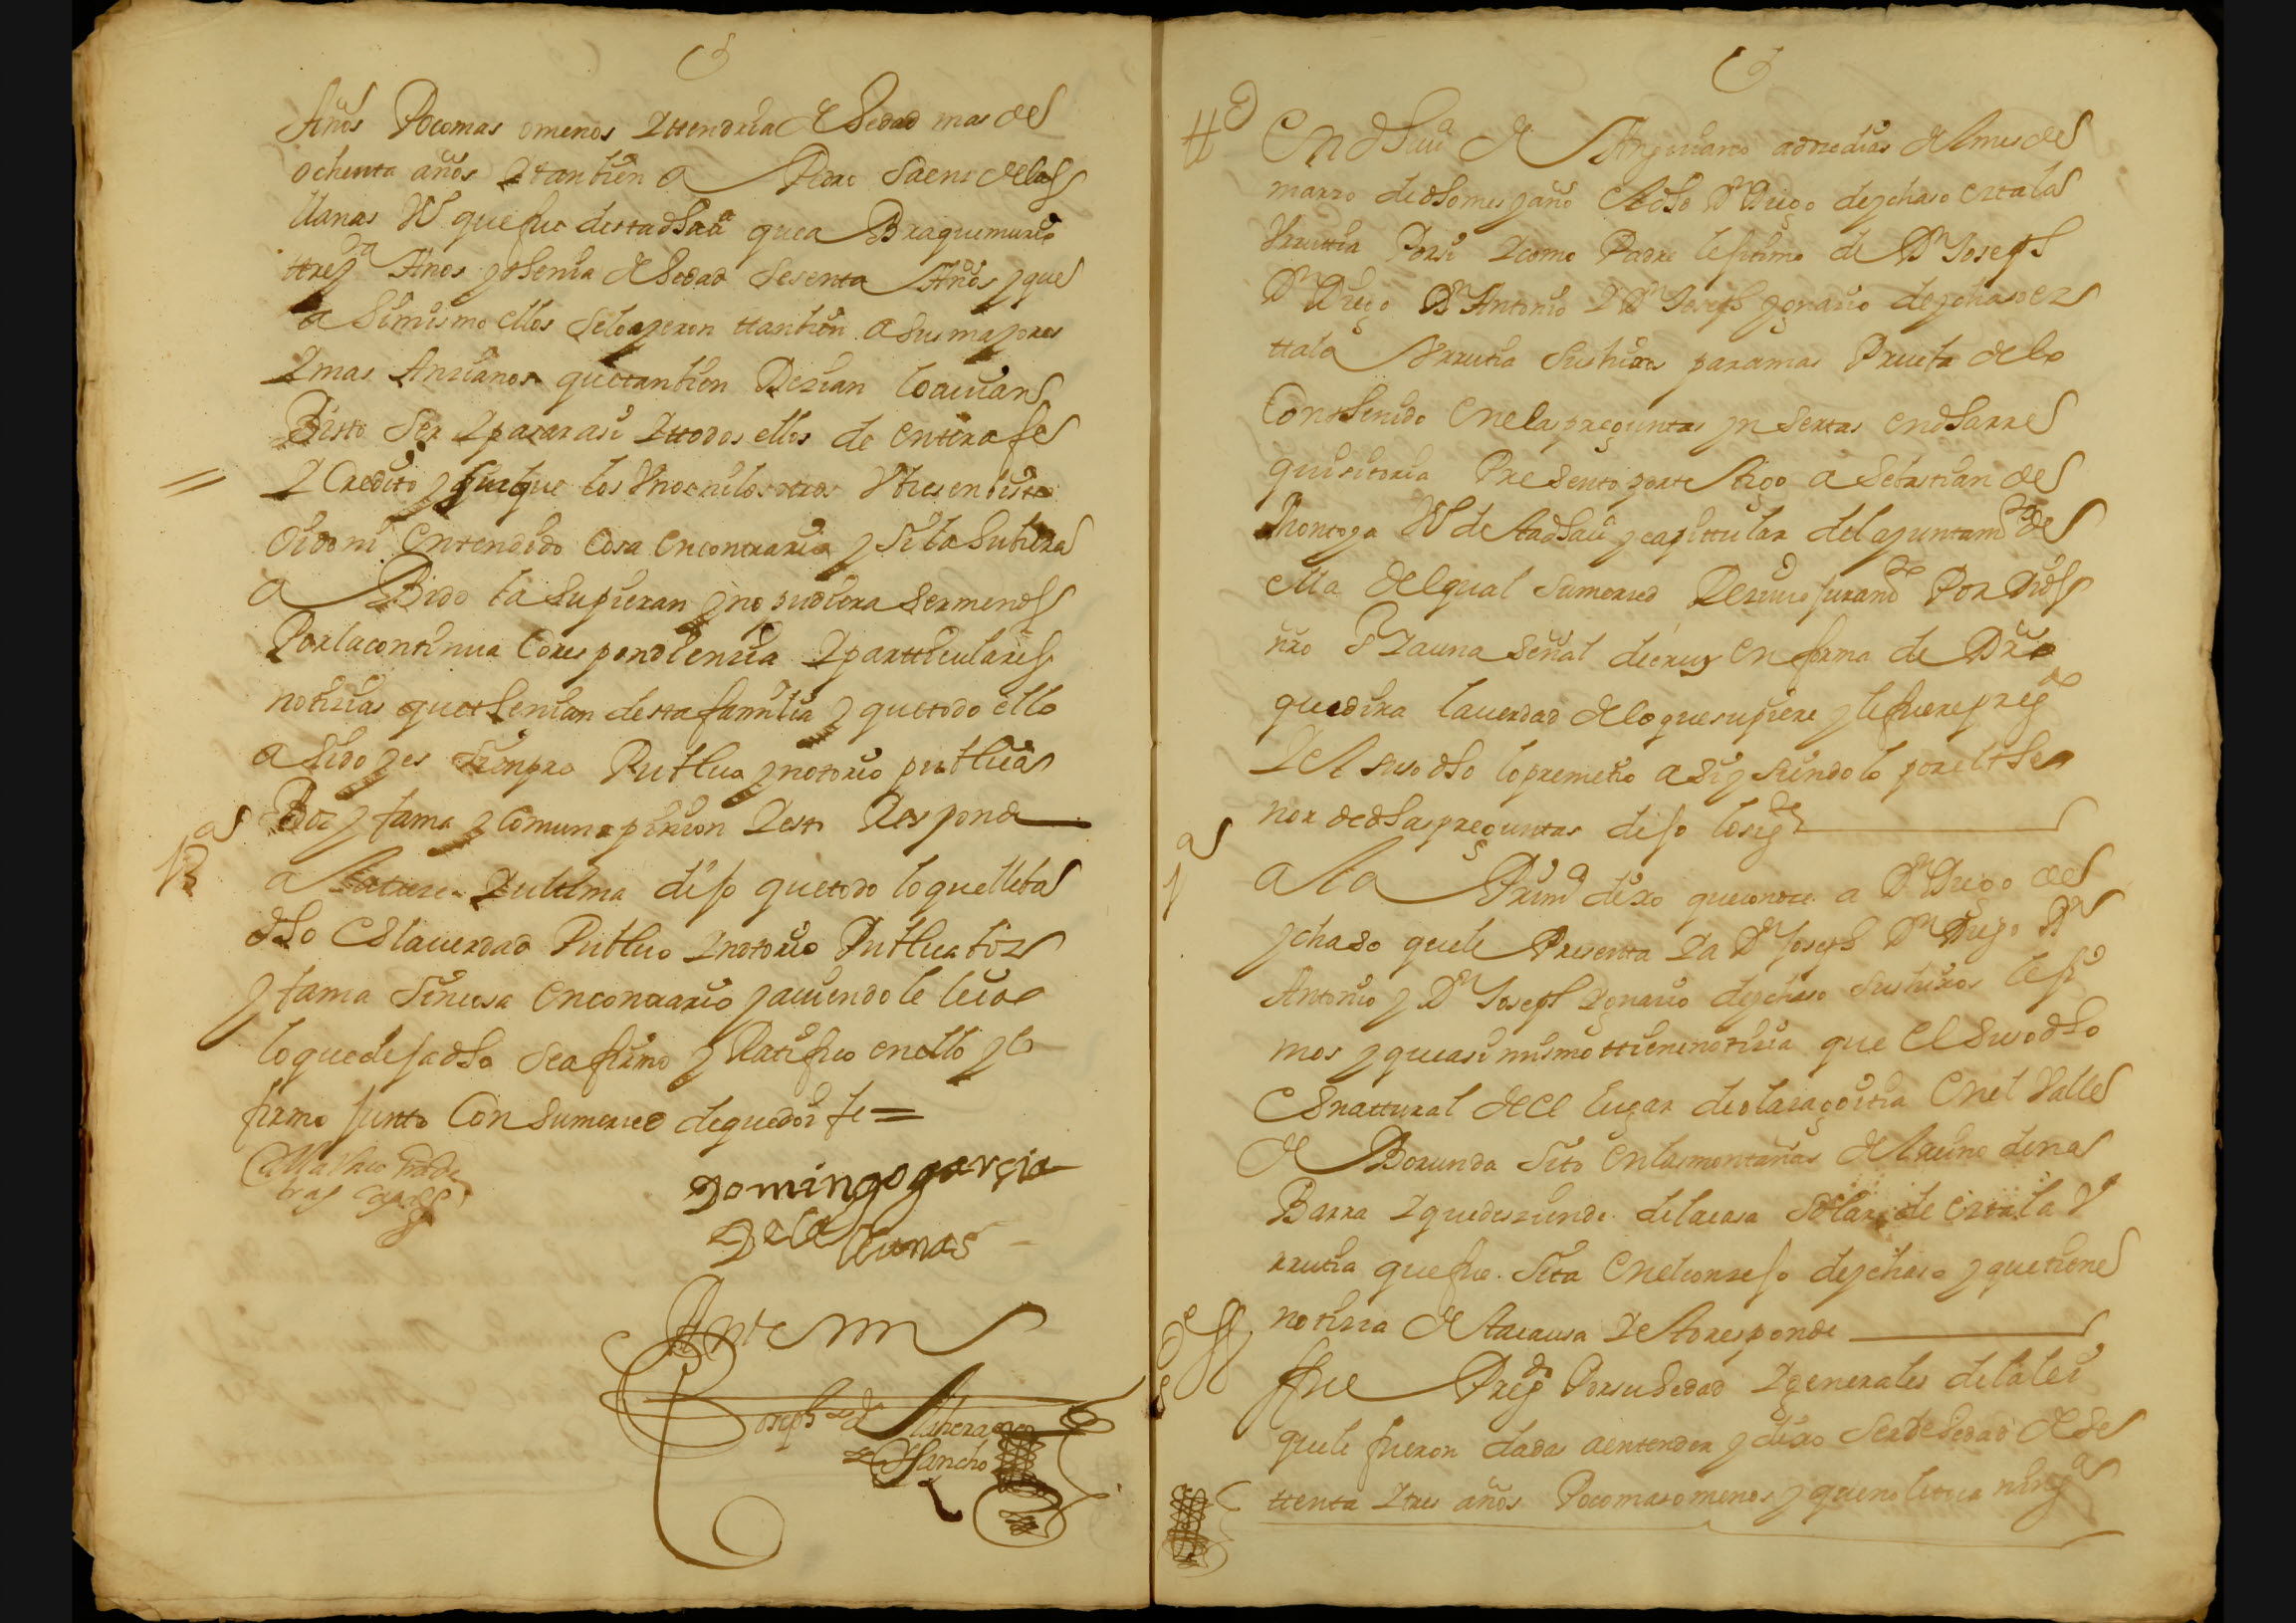 Años Pocomas omenos Ittendria de hedad mas de
ochenta años Itanbien a Pedro Saenz delas
llanas Vº que fue destadhauª quea Braquemurio
ttreyª Años ythenia de hedad sesenta Años yque
asimismo ellos seloayeron ttanbien asusmayores
Imas Anzianos quetanbien Dezian loauian
Bisto ser Ipasarasi Ittodos ellos de enterafe
ICredito yquelos Unosnilosotros
oidoni entendido Cosa encontrario ysilahubiera
a Bido lasupieran ynopudiera sermenos
Porlacontinua Corespondenzia Ipartticulares
notizias quethenian destafamilia yquetodo ello
asido yes sienpre Publico ynotorio publica
Boz yfama yComunopinion Iesto Responde
13ª
a Iultima dijo quetodo loquelleba
dho eslauerdad Publico Inotorio Publicaboz
yfama sincosa encontrario yauiendole leido
loquedejadho seafirmo yRatifico enello ylo
firmo junto Con sumerced dequedoi fe=
Domingo garçia
De la llanas
Antemi
Joseph de la Riuera
Sancho
tº
En dhauª de Anguiano adiezdias delmesde
marzo dedhomesyaño eldho Dn Diego deychaso Ertala
Urrutia Porsi Icomo Padre lejitimo de Dn Joseph
Dn Diego Dn Antonio I Dn Joseph ygnazio deychasoer
ttala Urrutia sushijos paramas Prueba delo
Conthenido enelaspreguntas ynsertas endharre
quisitoria Presentoporttestigo a Sebastian de
Montoya Vº de stadhauª ycapittular delayuntamto de
ella delqual sumerced Reziuiojuramto Por Dios
nro Sr Iauna señal decruz en forma de Dro
quedira lauerdad deloquesupiere ylefuerepregdo
Iel susodho loprometio asi ysiendolo porelthe
nor dedhaspreguntas dijo losigte
1ª
ala Primª dixo queconoce a Dn Diego de
ychaso quele Presenta Ia Dn Joseph Dn Diego Dn
Antonio y Dn Joseph Ignazio deychaso sushijos leji
mos yqueasimismottienenotizia que el susodho
esnattural deel lugar deolazagoitia enel Valle
de Borunda sito enlasmontañas delreino dena
Barra Iquedesziende delacasa Solar de erttala V
rrutia quefue sita enelconzejo deychaso yquetiene
notizia delacausa Iestoresponde
ffue Pregdo Porsuhedad Igenerales delalei
quele fueron dadas aentender ydixo serdehedad dese
ttenta Itres años Pocomasomenos yquenoletoca ningª